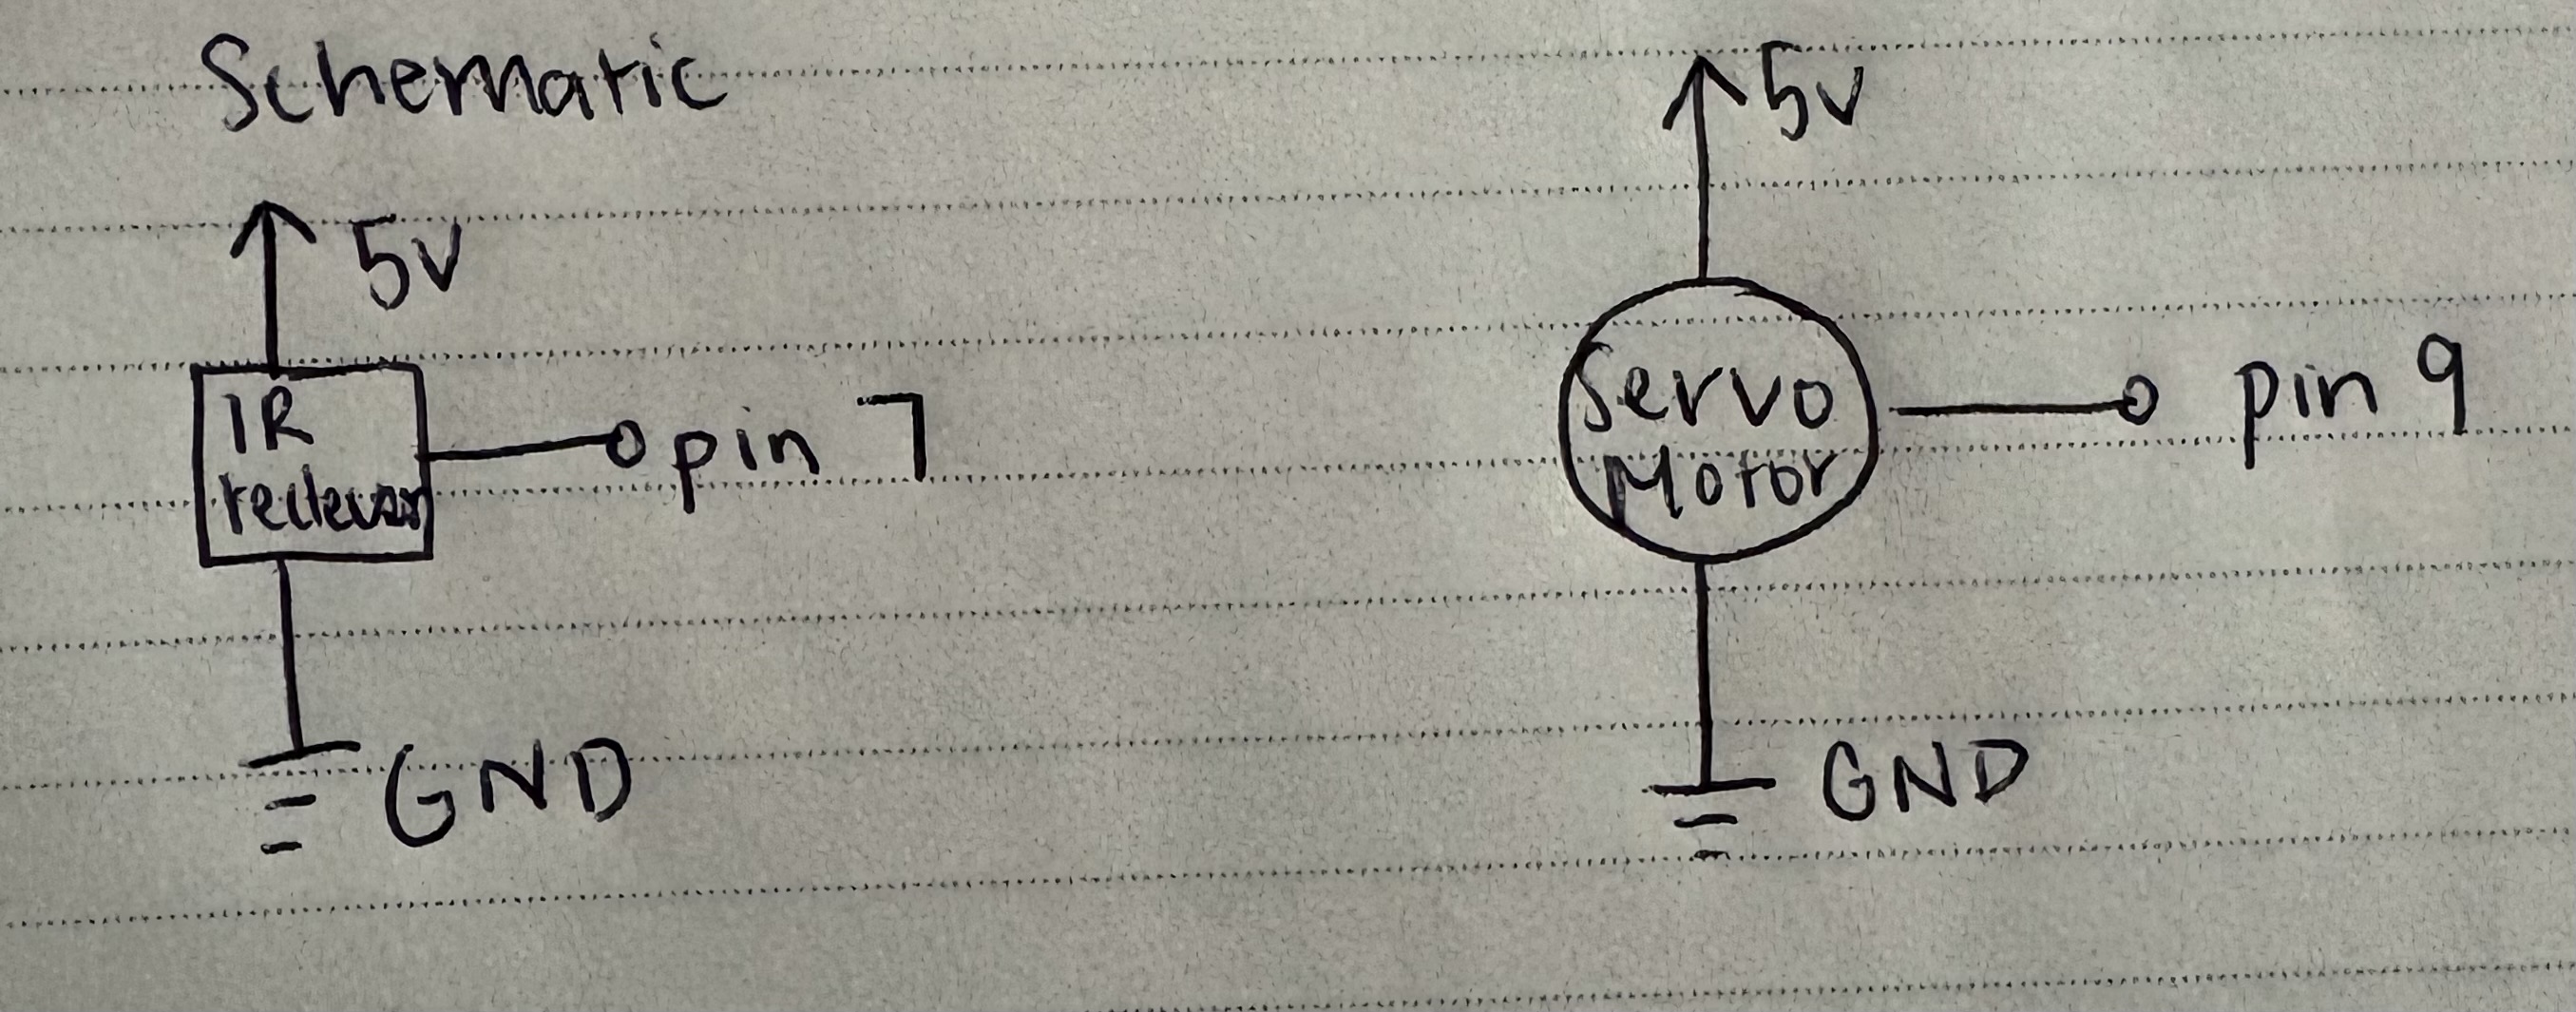 Schematic
5V
IR
pin 7
GND
5V
Servo
Motor
pin 9
GND